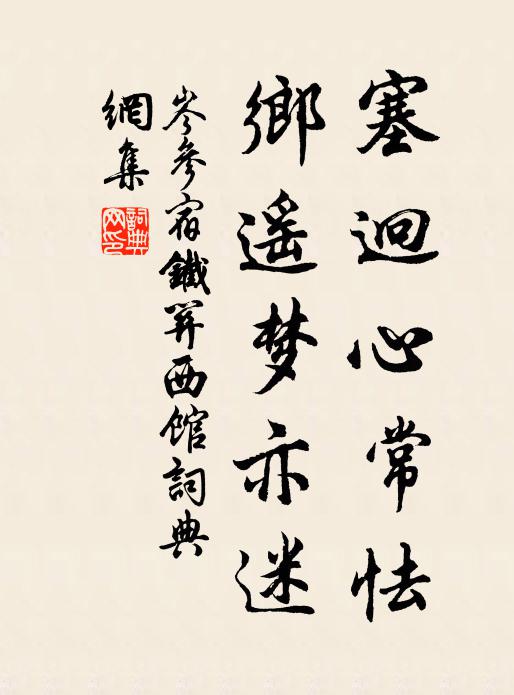 塞迥心常怯
鄉遥梦亦迷
岑參宿鐵関西館詞典
網集
詞典网印